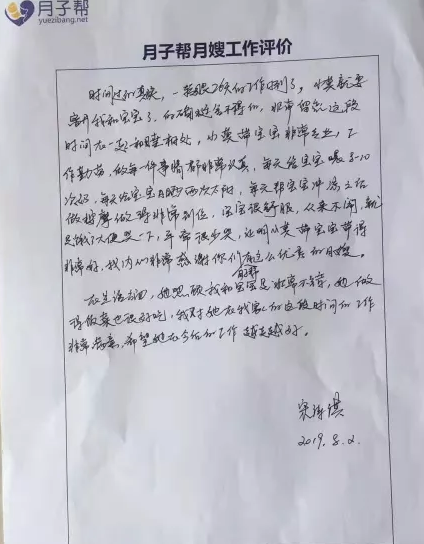 月子帮
yuezibang.net
月子帮月嫂工作评价
时间过的真快，一转眼26天的工作时间到了，小黄就要
离开我和宝宝了，的确挺舍不得的，非常留恋这段
时间在一起和睦相处，小黄带宝宝非常专业，工
作勤劳，做每一件事情都非常认真，每天给宝宝喂8-10
次奶，每天给宝宝晒两次太阳，每天帮宝宝冲凉之后
做按摩做得非常到位，宝宝很舒服，从来不闹，就
是饿了大便哭一下，平常很少哭，证明小黄带宝宝带得
非常好，我内心非常感谢你们有这么优秀的月嫂。
在生活方面，她照顾我和宝宝是非常不错，她做
得饭菜也很好吃，我对她在我家的这段时间的工作
非常满意，希望她在今后的工作越来越好。
2019.8.2.